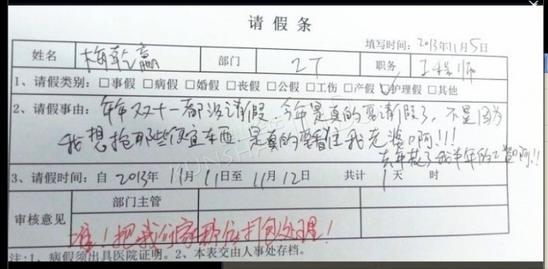 请假条
填写时间：2013年11月5日
姓名 梅乾赢 部门 IT 职务 工程师
1、请假类别：□事假 □病假 □婚假 □丧假 □公假 □工伤 □产假 ☑护理假 □其他
2、请假事由：年年双十一都没请假，今年是真的要请假了，不是因为
我想抢那些便宜东西，是真的要看住我老婆啊!!!
去年花了我半年的工资啊!!!
3、请假时间：自 2013年 11月 11日至 11月 12日 共计 1天 时
审核意见 部门主管
准！把我们家那位打包处理！
注：1、病假须出具医院证明。2、本表交由人事处存档。